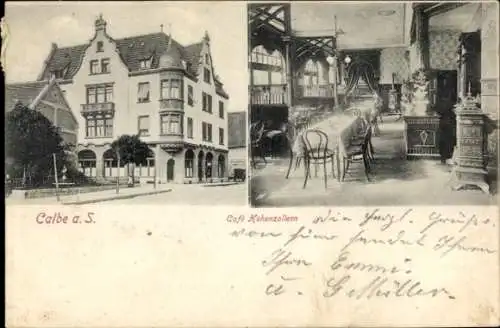 Calbe a. S.
Café Hohenzollern
die herzl. Grüße
von hier sendet Ihnen
Ihre Emmi.
u. G. Müller.